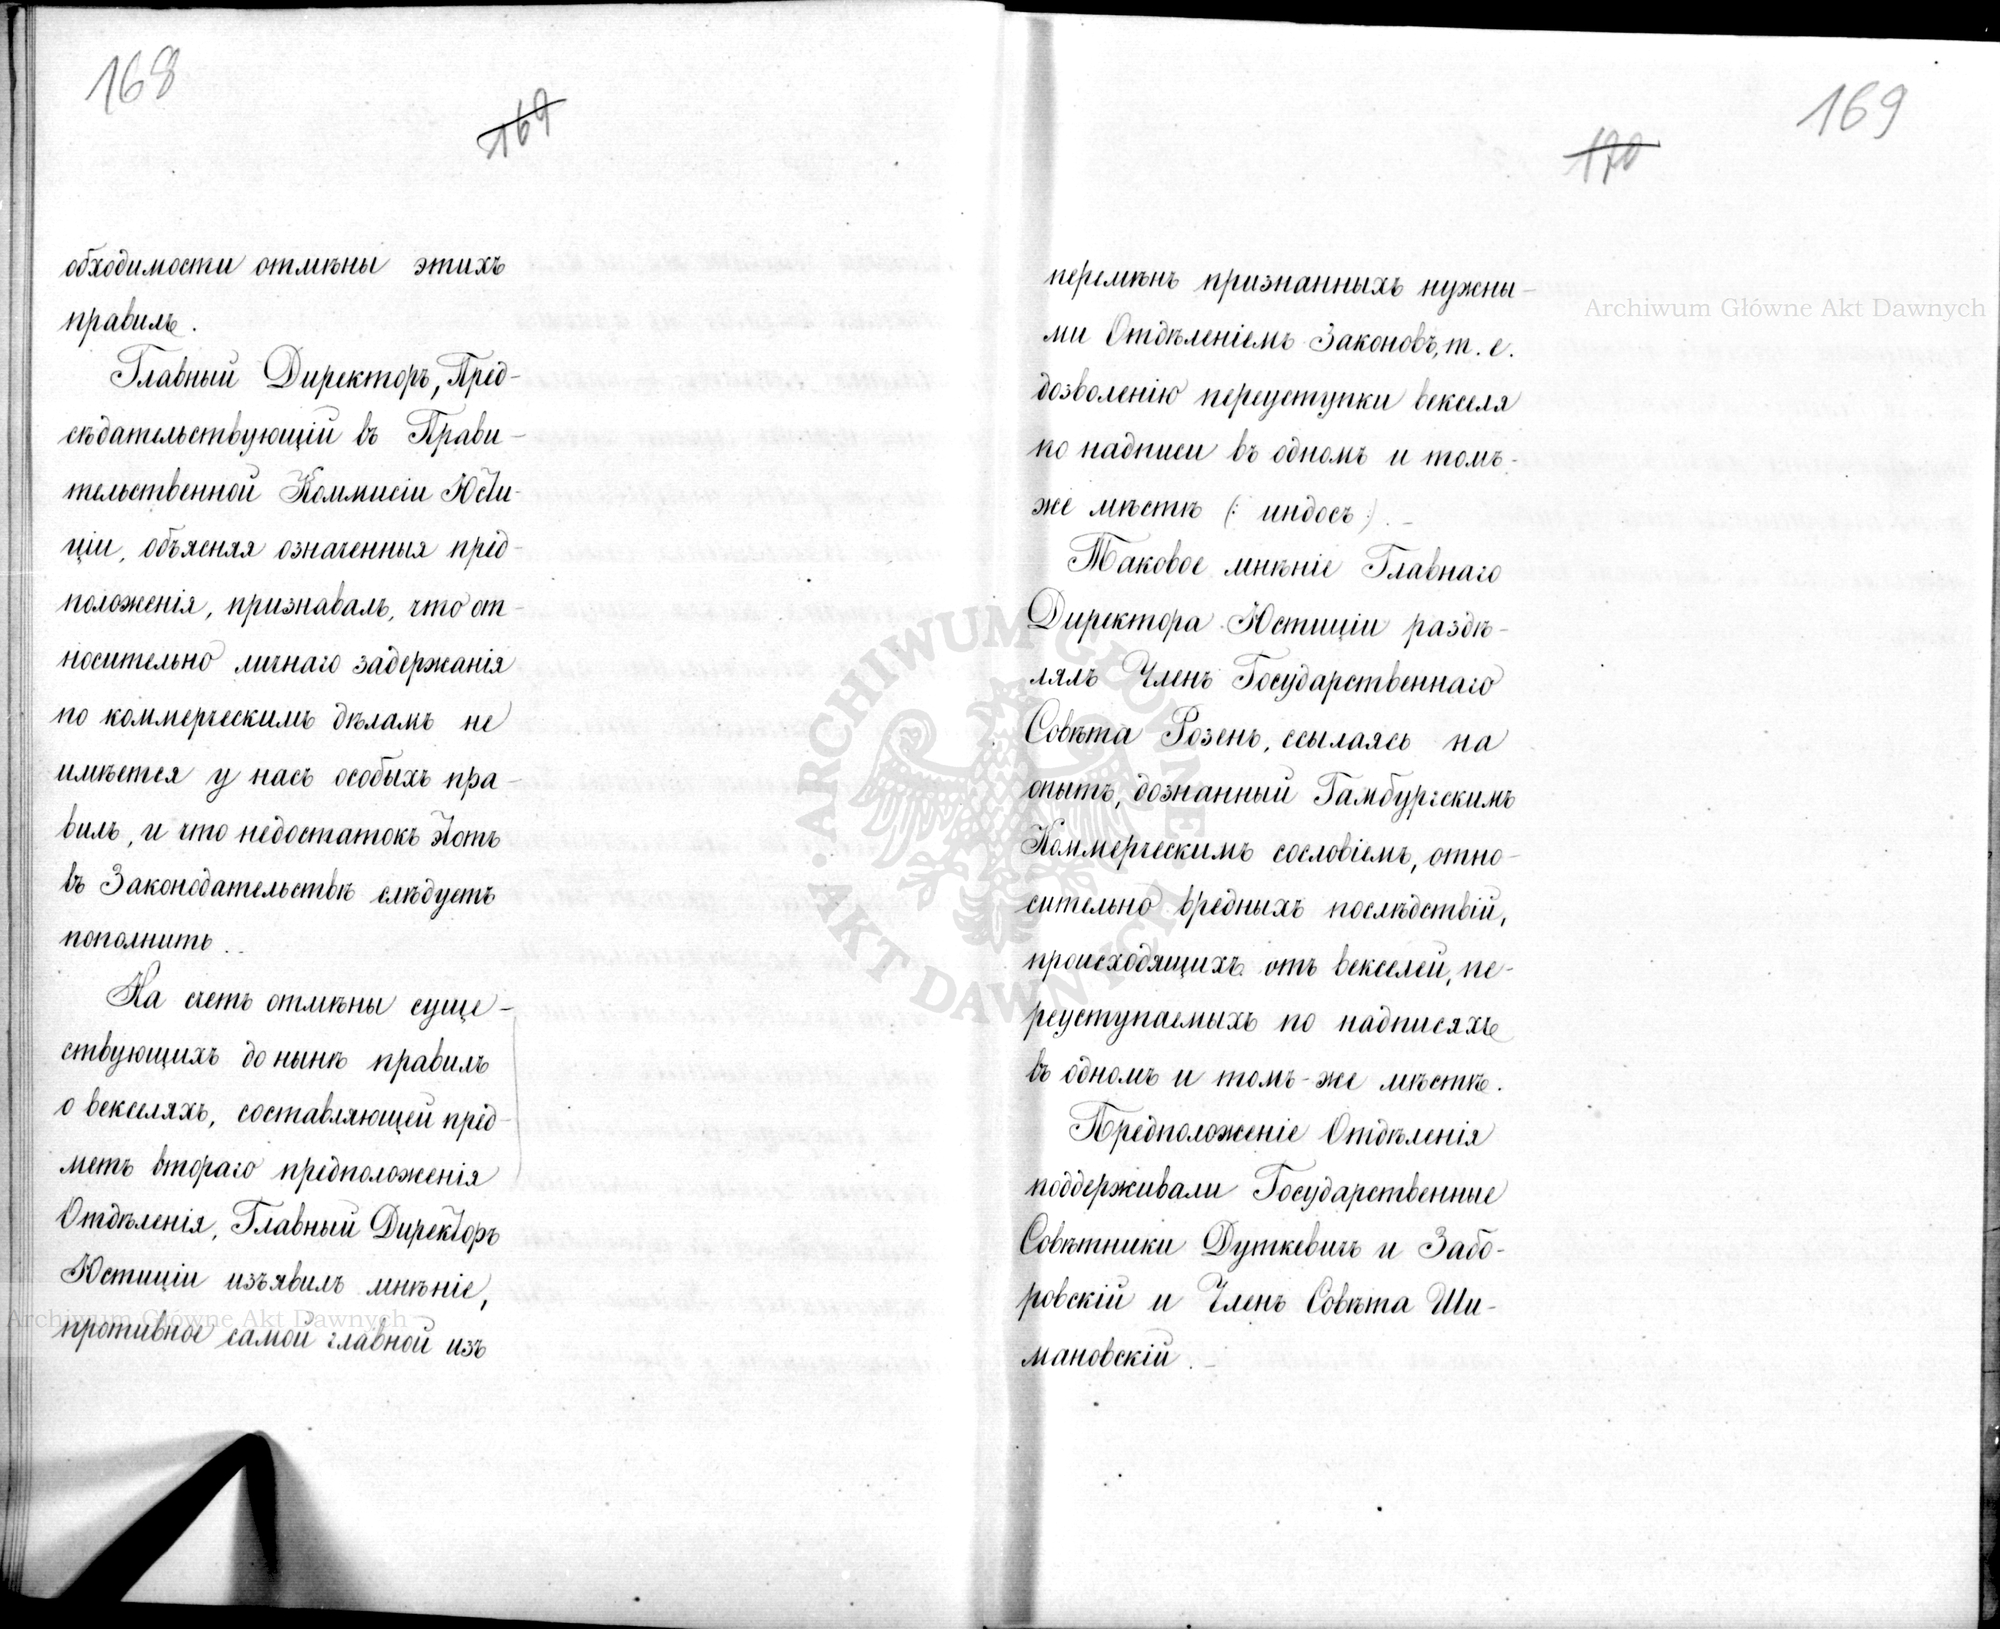 168
169
обходимости отмѣны этихъ
правилъ.
Главный Директоръ, Пред-
сѣдательствующій въ Прави-
тельственной Коммисіи Юсти-
ціи, объясняя означенныя пред-
положенія, признавалъ, что от-
носительно личнаго задержанія
по коммерческимъ дѣламъ не
имѣется у насъ особыхъ пра-
вилъ, и что недостатокъ этотъ
въ Законодательствѣ слѣдуетъ
пополнить.
На счетъ отмѣны суще-
ствующихъ до нынѣ правилъ
о векселяхъ, составляющей пред-
метъ втораго предположенія
Отдѣленія, Главный Директоръ
Юстиціи изъявилъ мнѣніе,
противное самой главной изъ
Archiwum Główne Akt Dawnych
169
170
перемѣнъ признанныхъ нужны-
ми Отдѣленіемъ Законовъ, т. е.
дозволенію переуступки векселя
по надписи въ одномъ и томъ-
же мѣстѣ (: индосъ :).
Таковое мнѣніе Главнаго
Директора Юстиціи раздѣ-
лялъ Членъ Государственнаго
Совѣта Розенъ, ссылаясь на
опытъ, дознанный Гамбургскимъ
Коммерческимъ сословіемъ, отно-
сительно вредныхъ послѣдствій,
происходящихъ отъ векселей, пе-
реуступаемыхъ по надписяхъ
въ одномъ и томъ-же мѣстѣ.
Предположеніе Отдѣленія
поддерживали Государственные
Совѣтники Дуткевичъ и Забо-
ровскій и Членъ Совѣта Ши-
мановскій.
Archiwum Główne Akt Dawnych
ARCHIWUM GŁÓWNE AKT DAWNYCH